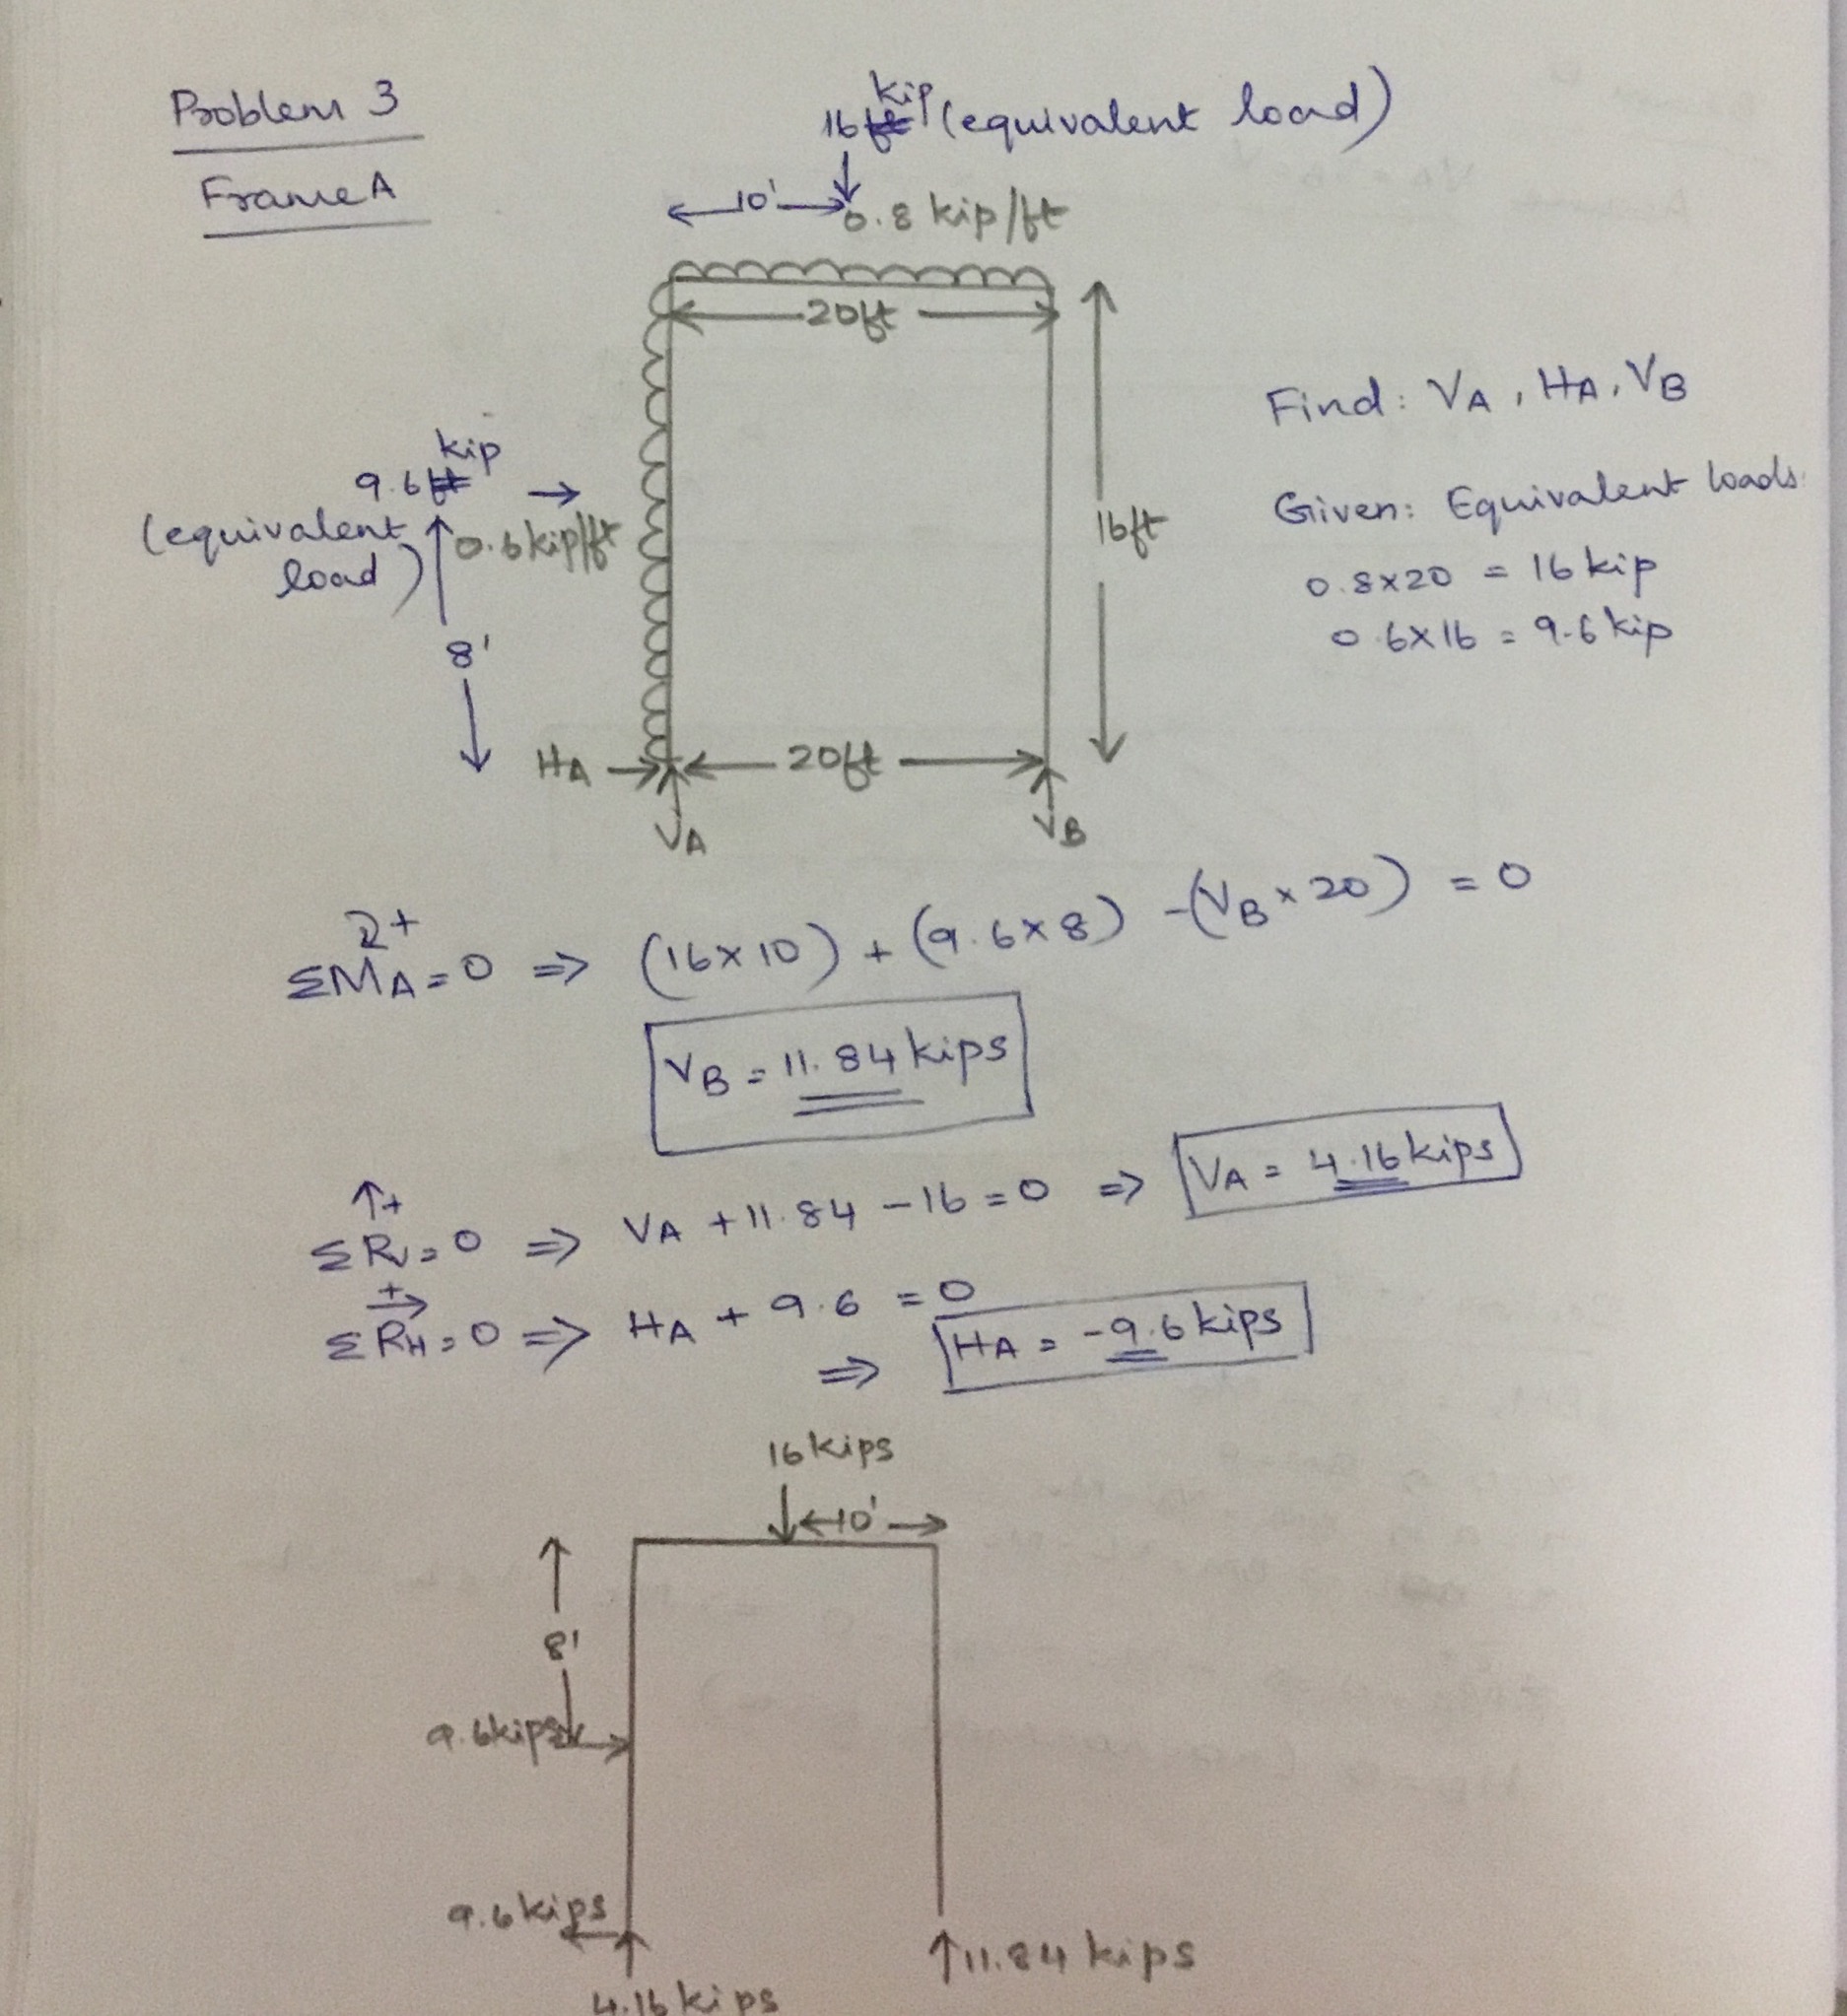 Problem 3
Frame A
kip
16 (equivalent load)
10'
0.8 kip/ft
20ft
Find: VA, HA, VB
kip
9.6
(equivalent load)
0.6 kip/ft
8'
16ft
Given: Equivalent loads:
0.8×20 = 16 kip
0.6×16 = 9.6 kip
HA
20ft
VA
VB
+
ΣMA=0 ⇒ (16×10) + (9.6×8) -(VB×20) = 0
VB = 11.84 kips
↑+
ΣRV=0 ⇒ VA + 11.84 - 16 = 0 ⇒ VA = 4.16 kips
+→
ΣRH=0 ⇒ HA + 9.6 = 0
⇒ HA = -9.6 kips
16 kips
10'
8'
9.6 kips
9.6 kips
4.16 kips
11.84 kips